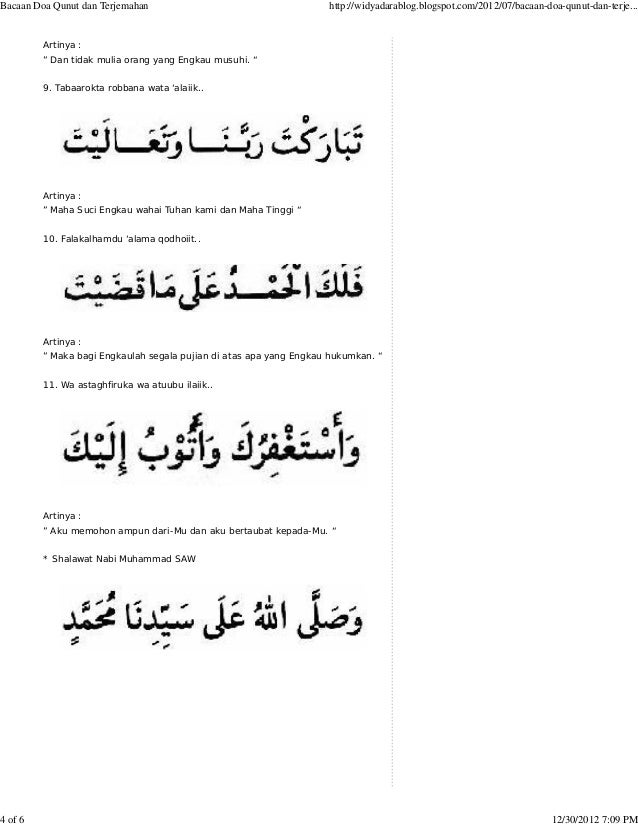 Bacaan Doa Qunut dan Terjemahan
http://widyadarablog.blogspot.com/2012/07/bacaan-doa-qunut-dan-terje...
Artinya :
“ Dan tidak mulia orang yang Engkau musuhi. “
9. Tabaarokta robbana wata ‘alaiik..
تَبَارَكْتَ رَبَّـنَــا وَتَعَــالَيْتَ
Artinya :
“ Maha Suci Engkau wahai Tuhan kami dan Maha Tinggi “
10. Falakalhamdu ‘alama qodhoiit..
فَلَكَ الْحَمْــدُ عَلَى مَا قَضَيْتَ
Artinya :
“ Maka bagi Engkaulah segala pujian di atas apa yang Engkau hukumkan. “
11. Wa astaghfiruka wa atuubu ilaiik..
وَأَسْتَغْفِرُكَ وَأَتُوْبُ إِلَيْكَ
Artinya :
“ Aku memohon ampun dari-Mu dan aku bertaubat kepada-Mu. “
* Shalawat Nabi Muhammad SAW
وَصَلَّى اللهُ عَلَى سَيِّدِنَا مُحَمَّدٍ
4 of 6
12/30/2012 7:09 PM